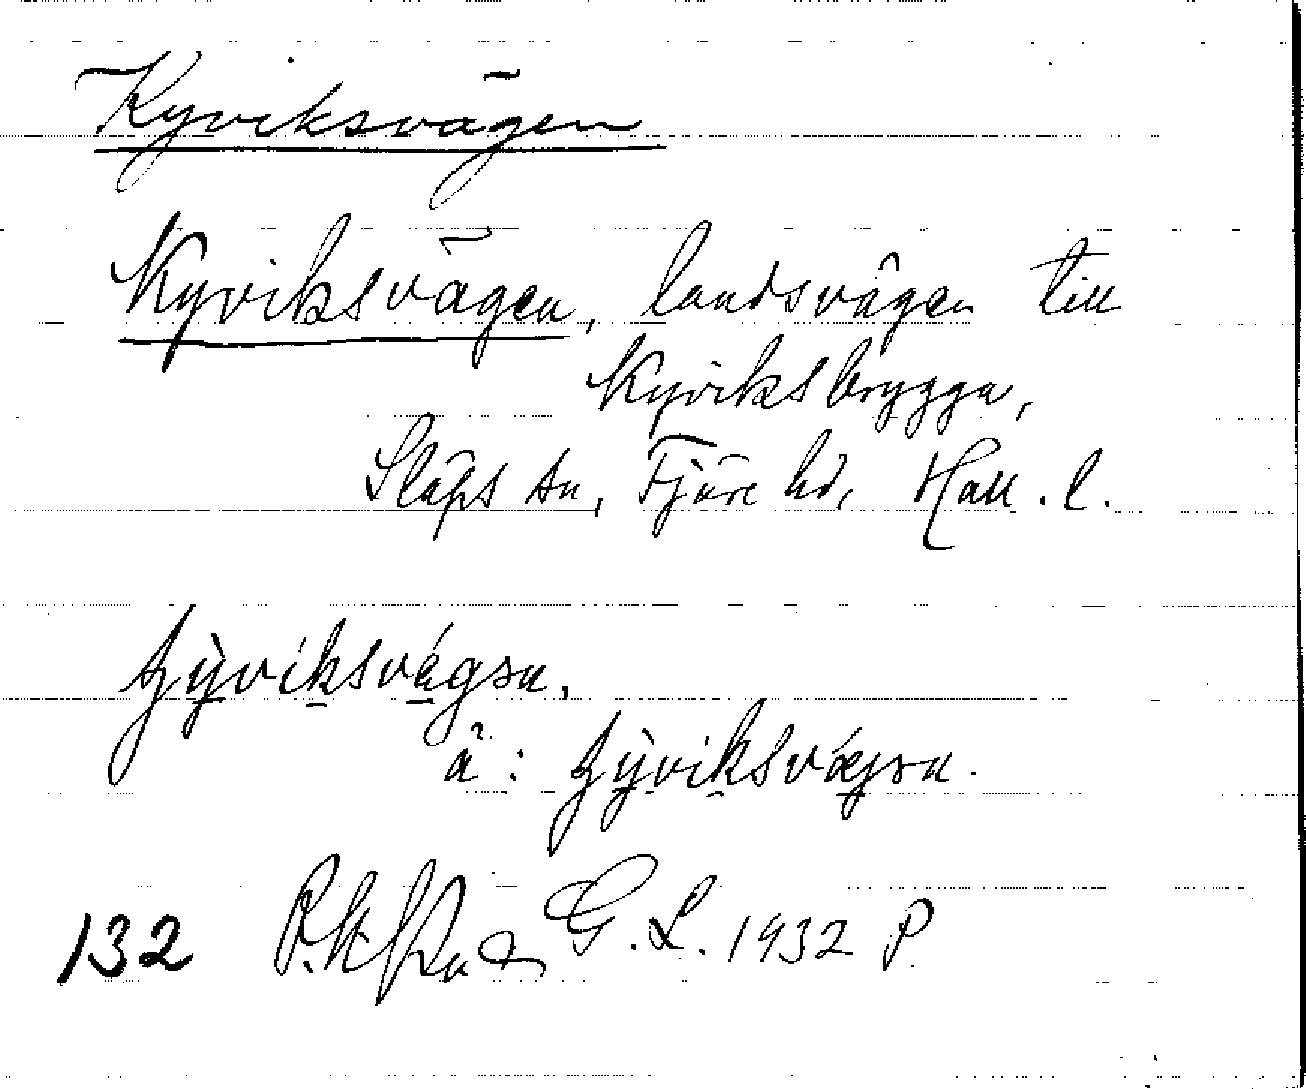 Kyviksvägen
Kyviksvägen, landsvägen till
Kyviksbrygga,
Släps sn, Fjäre hd, Hall. l.
ä:
132 G. L. 1932 P